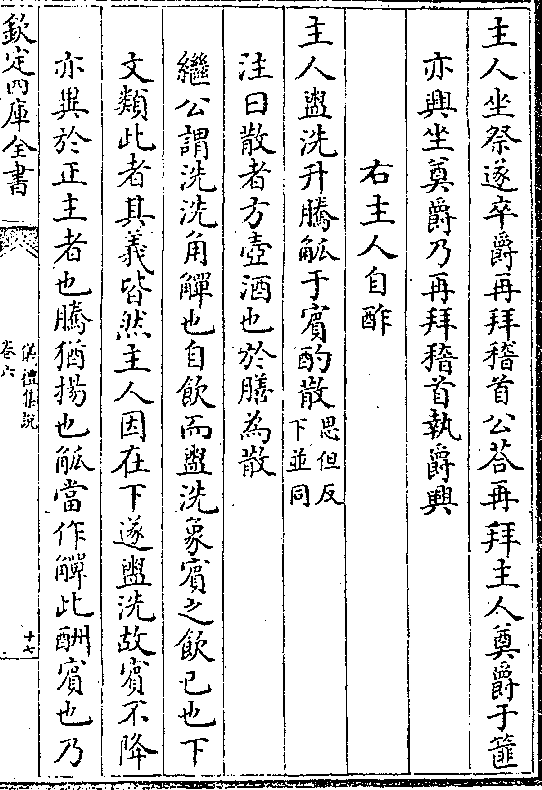 主人坐祭遂卒爵再拜稽首公荅再拜主人奠爵于篚
亦興坐奠爵乃再拜稽首執爵興
右主人自酢
主人盥洗升騰觚于賓酌散思但反下並同
注曰散者方壺酒也於膳為散
繼公謂洗洗角觶也自飲而盥洗象賓之飲已也下
文類此者其義皆然主人因在下遂盥洗故賓不降
亦異於正主者也騰猶揚也觚當作觶此酬賓也乃
欽定四庫全書
儀禮集說
卷六
十七